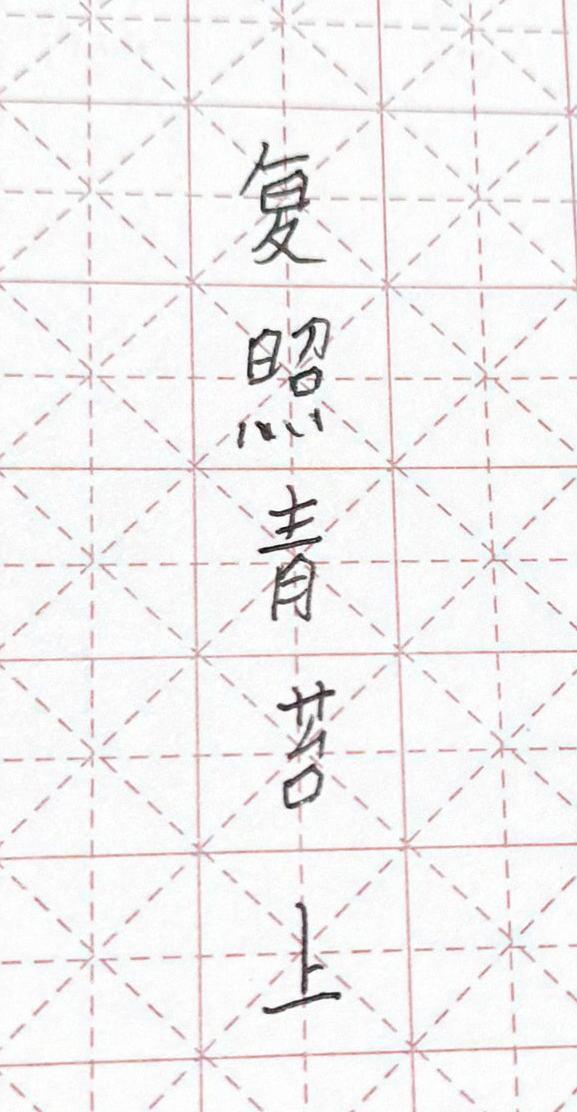 复照青苔上